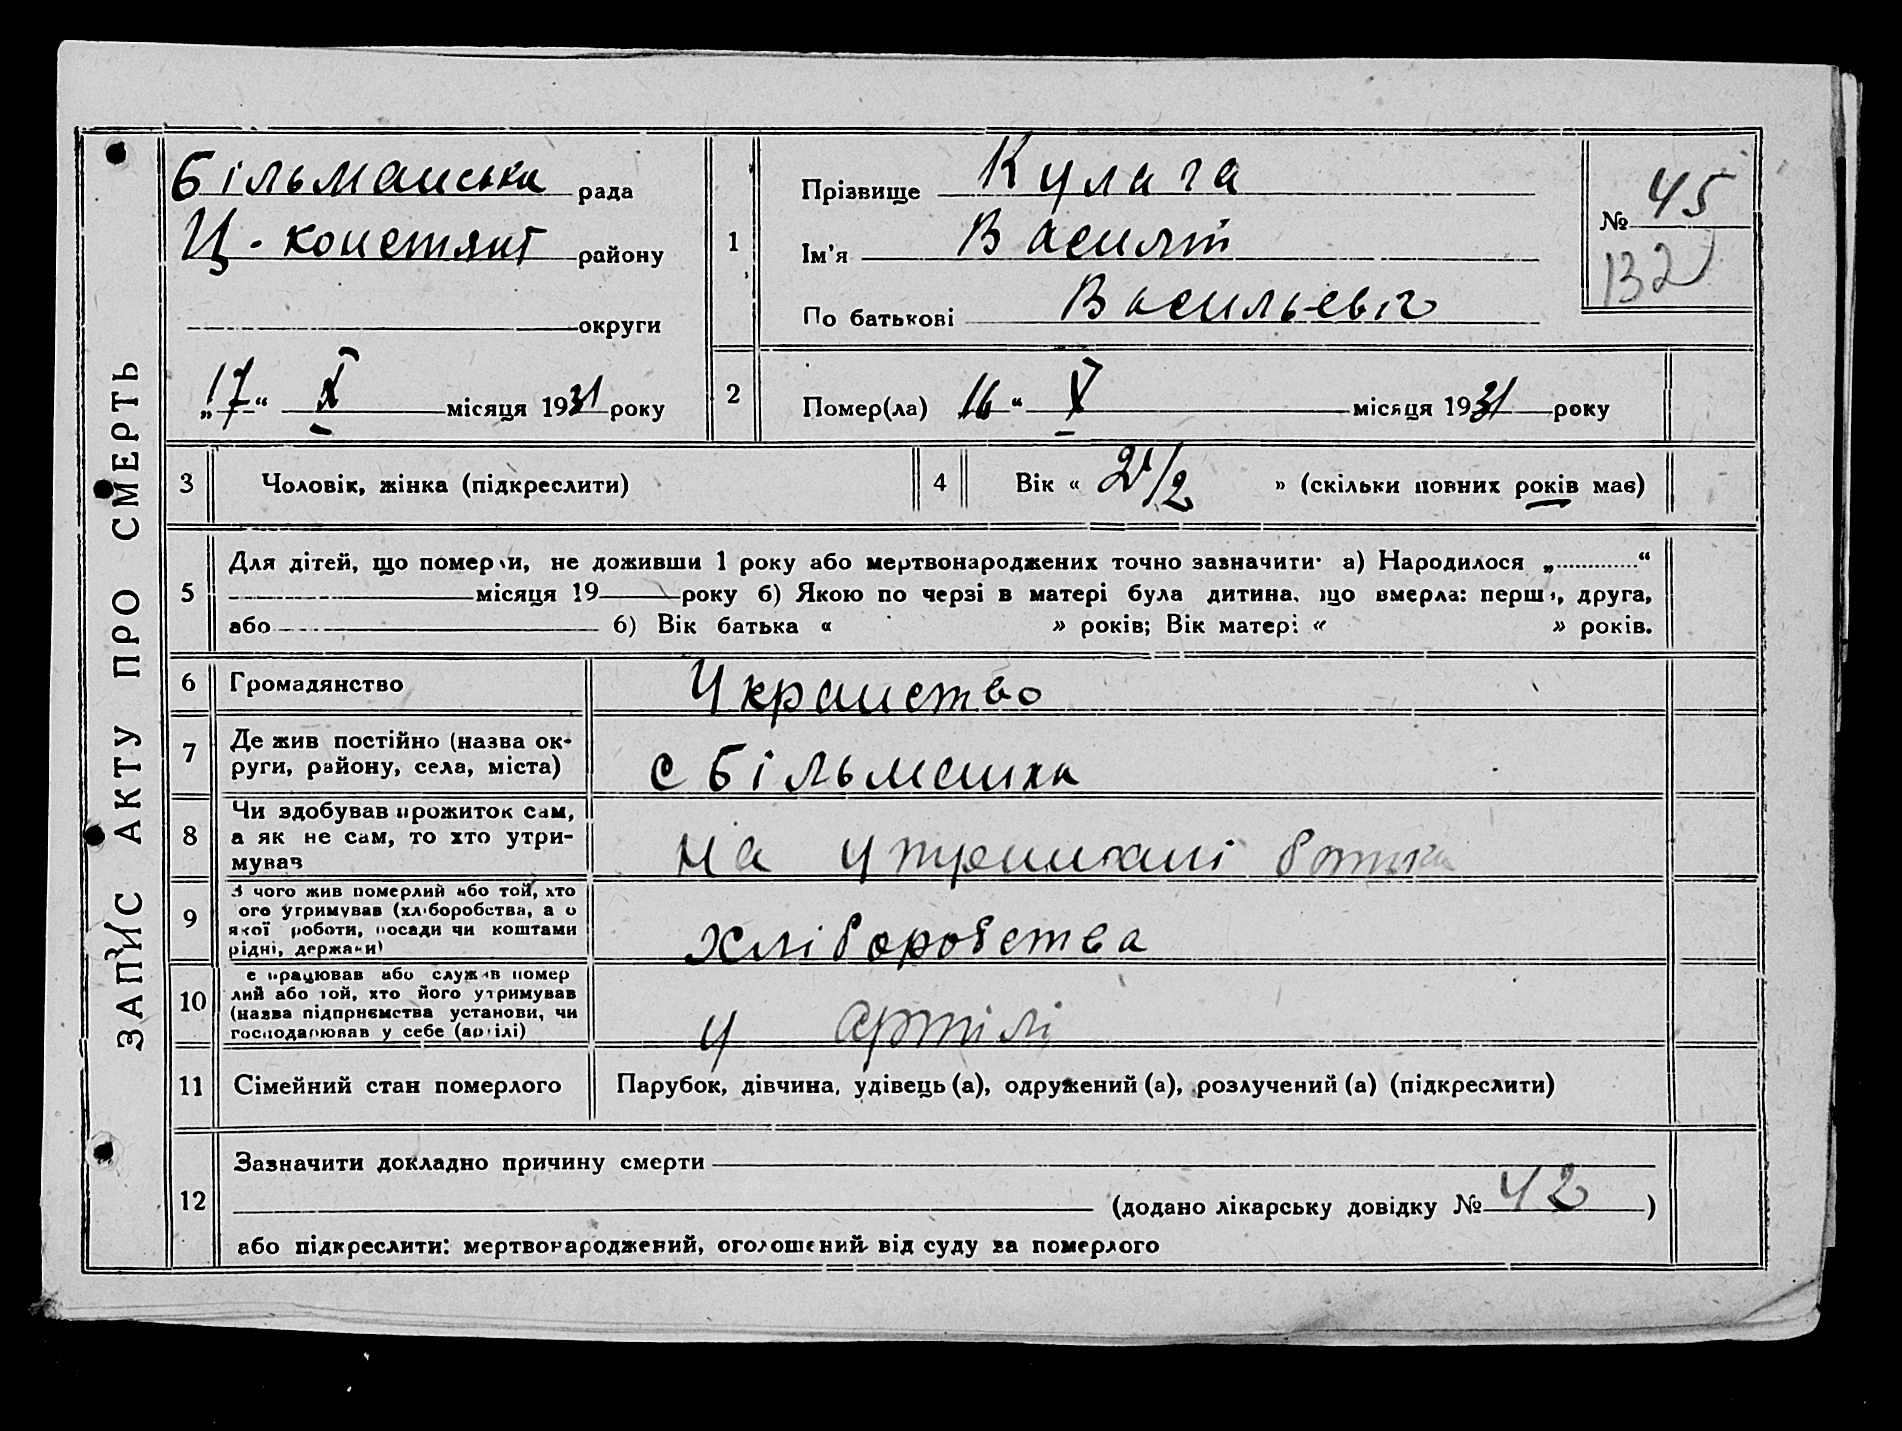 ЗАПИС АКТУ ПРО СМЕРТЬ
Більманська рада
Ц-констянт району
округи
„17“ X місяця 1931 року
1
Прізвище Кулага
Ім'я Василій
По батькові Васильевіч
№ 45
132
2
Помер(ла) 16 “ X місяця 1931 року
3 Чоловік, жінка (підкреслити)
4 Вік « 2 1/2 » (скільки повних років має)
5
Для дітей, що померли, не доживши 1 року або мертвонароджених точно зазначити· а) Народилося „ “
місяця 19 року б) Якою по черзі в матері була дитина, що вмерла: перша, друга,
або б) Вік батька « » років; Вік матері « » років.
6 Громадянство Украинство
7 Де жив постійно (назва ок-
руги, району, села, міста)
с Більманка
8 Чи здобував прожиток сам,
а як не сам, то хто утри-
мував
на утримані батька
9 З чого жив померлий або той, хто
ого утримував (хліборобства, а о
якої роботи, посади чи коштами
рідні, держави)
хліборобства
10 е працював або служив помер
лий або той, хто його утримував
(назва підприємства установи, чи
господарював у себе (артілі)
у артілі
11 Сімейний стан померлого Парубок, дівчина, удівець (а), одружений (а), розлучений (а) (підкреслити)
12
Зазначити докладно причину смерти
(додано лікарську довідку № 42 )
або підкреслити: мертвонароджений, оголошений від суду за померлого